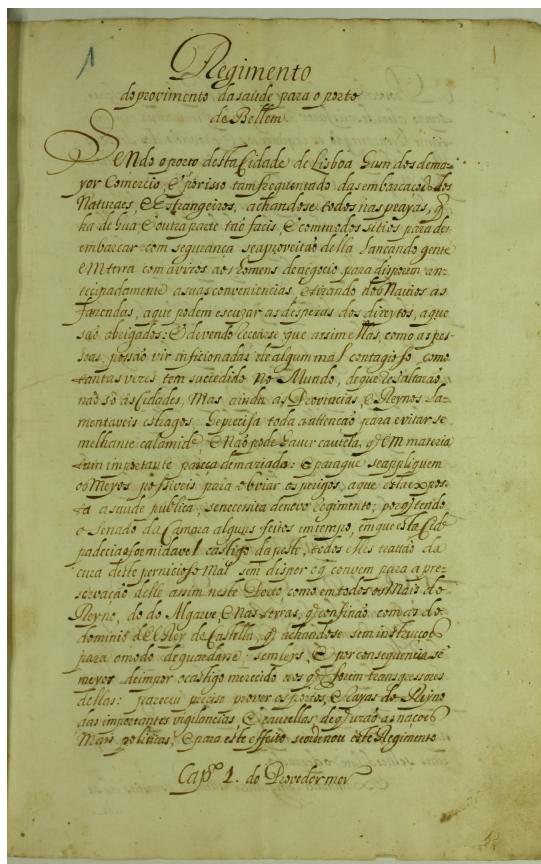 1
Regimento
do provimento da saude para o porto
de Bellem.
Sendo o porto desta Cidade de Lisboa hum dos dema-
yor Comercio, e por isso tam frequentado das embarcaçoẽs dos
Naturaes, e Estrangeiros, achandose todos nas prayas, q̃
ha de hũa e outra parte taõ facis, e commodos sitios para des
embarcar com segurança se aproveitaõ della lançando gente
em terra com avizos aos homens de negocio para disporem an-
tecipadamente as suas conveniencias, e tirando dos Navios as
fazendas, a que podem escuzar as despezas dos direytos, a que
saõ obrigados: E devendo recearse que assim ellas, como as pes-
soas, possaõ vir inficionadas de algum mal contagioso, como
tantas vezes tem succedido no Mundo, de que resaltaraõ
naõ só ás Cidades, mas ainda ás Provincias, e Reynos la-
mentaveis estragos. He precisa toda a attençaõ para evitar se-
melhante calamidᵉ e Naõ pode haver cautela, q̃ em materia
tam importante pareça demaziada: e para que se appliquem
os meyos possiveis para obviar os perigos, a que está expos-
ta a saude publica, se necessita de novo Regimento; porq̃ tendo
o Senado da Camara alguns feitos em tempo, em que esta Cidᵉ
padecia o formidavel castigo da peste, todos elles trataõ da
cura deste pernicioso mal sem dispor o q̃ convem para a pre-
servaçaõ delle assim neste Porto, como em todos os mais do
Reyno, do do Algarve, e nas terras, q̃ confinaõ com as do
dominio d'El Rey de Castella, q̃ achandose sem instrucçoẽs
para o modo de guardarse; sem leys, e por consequencia sẽ
meyos de impor o castigo merecido aos q̃ forem transgressores
dellas: pareceu preciso prover os portos, e Rayas do Reyno
das importantes vigilancias, e cautellas, de q̃ uzaõ as naçoẽs
mais politicas, e para este effeito se ordenou este Regimento
Capº 1. do Provedor mor